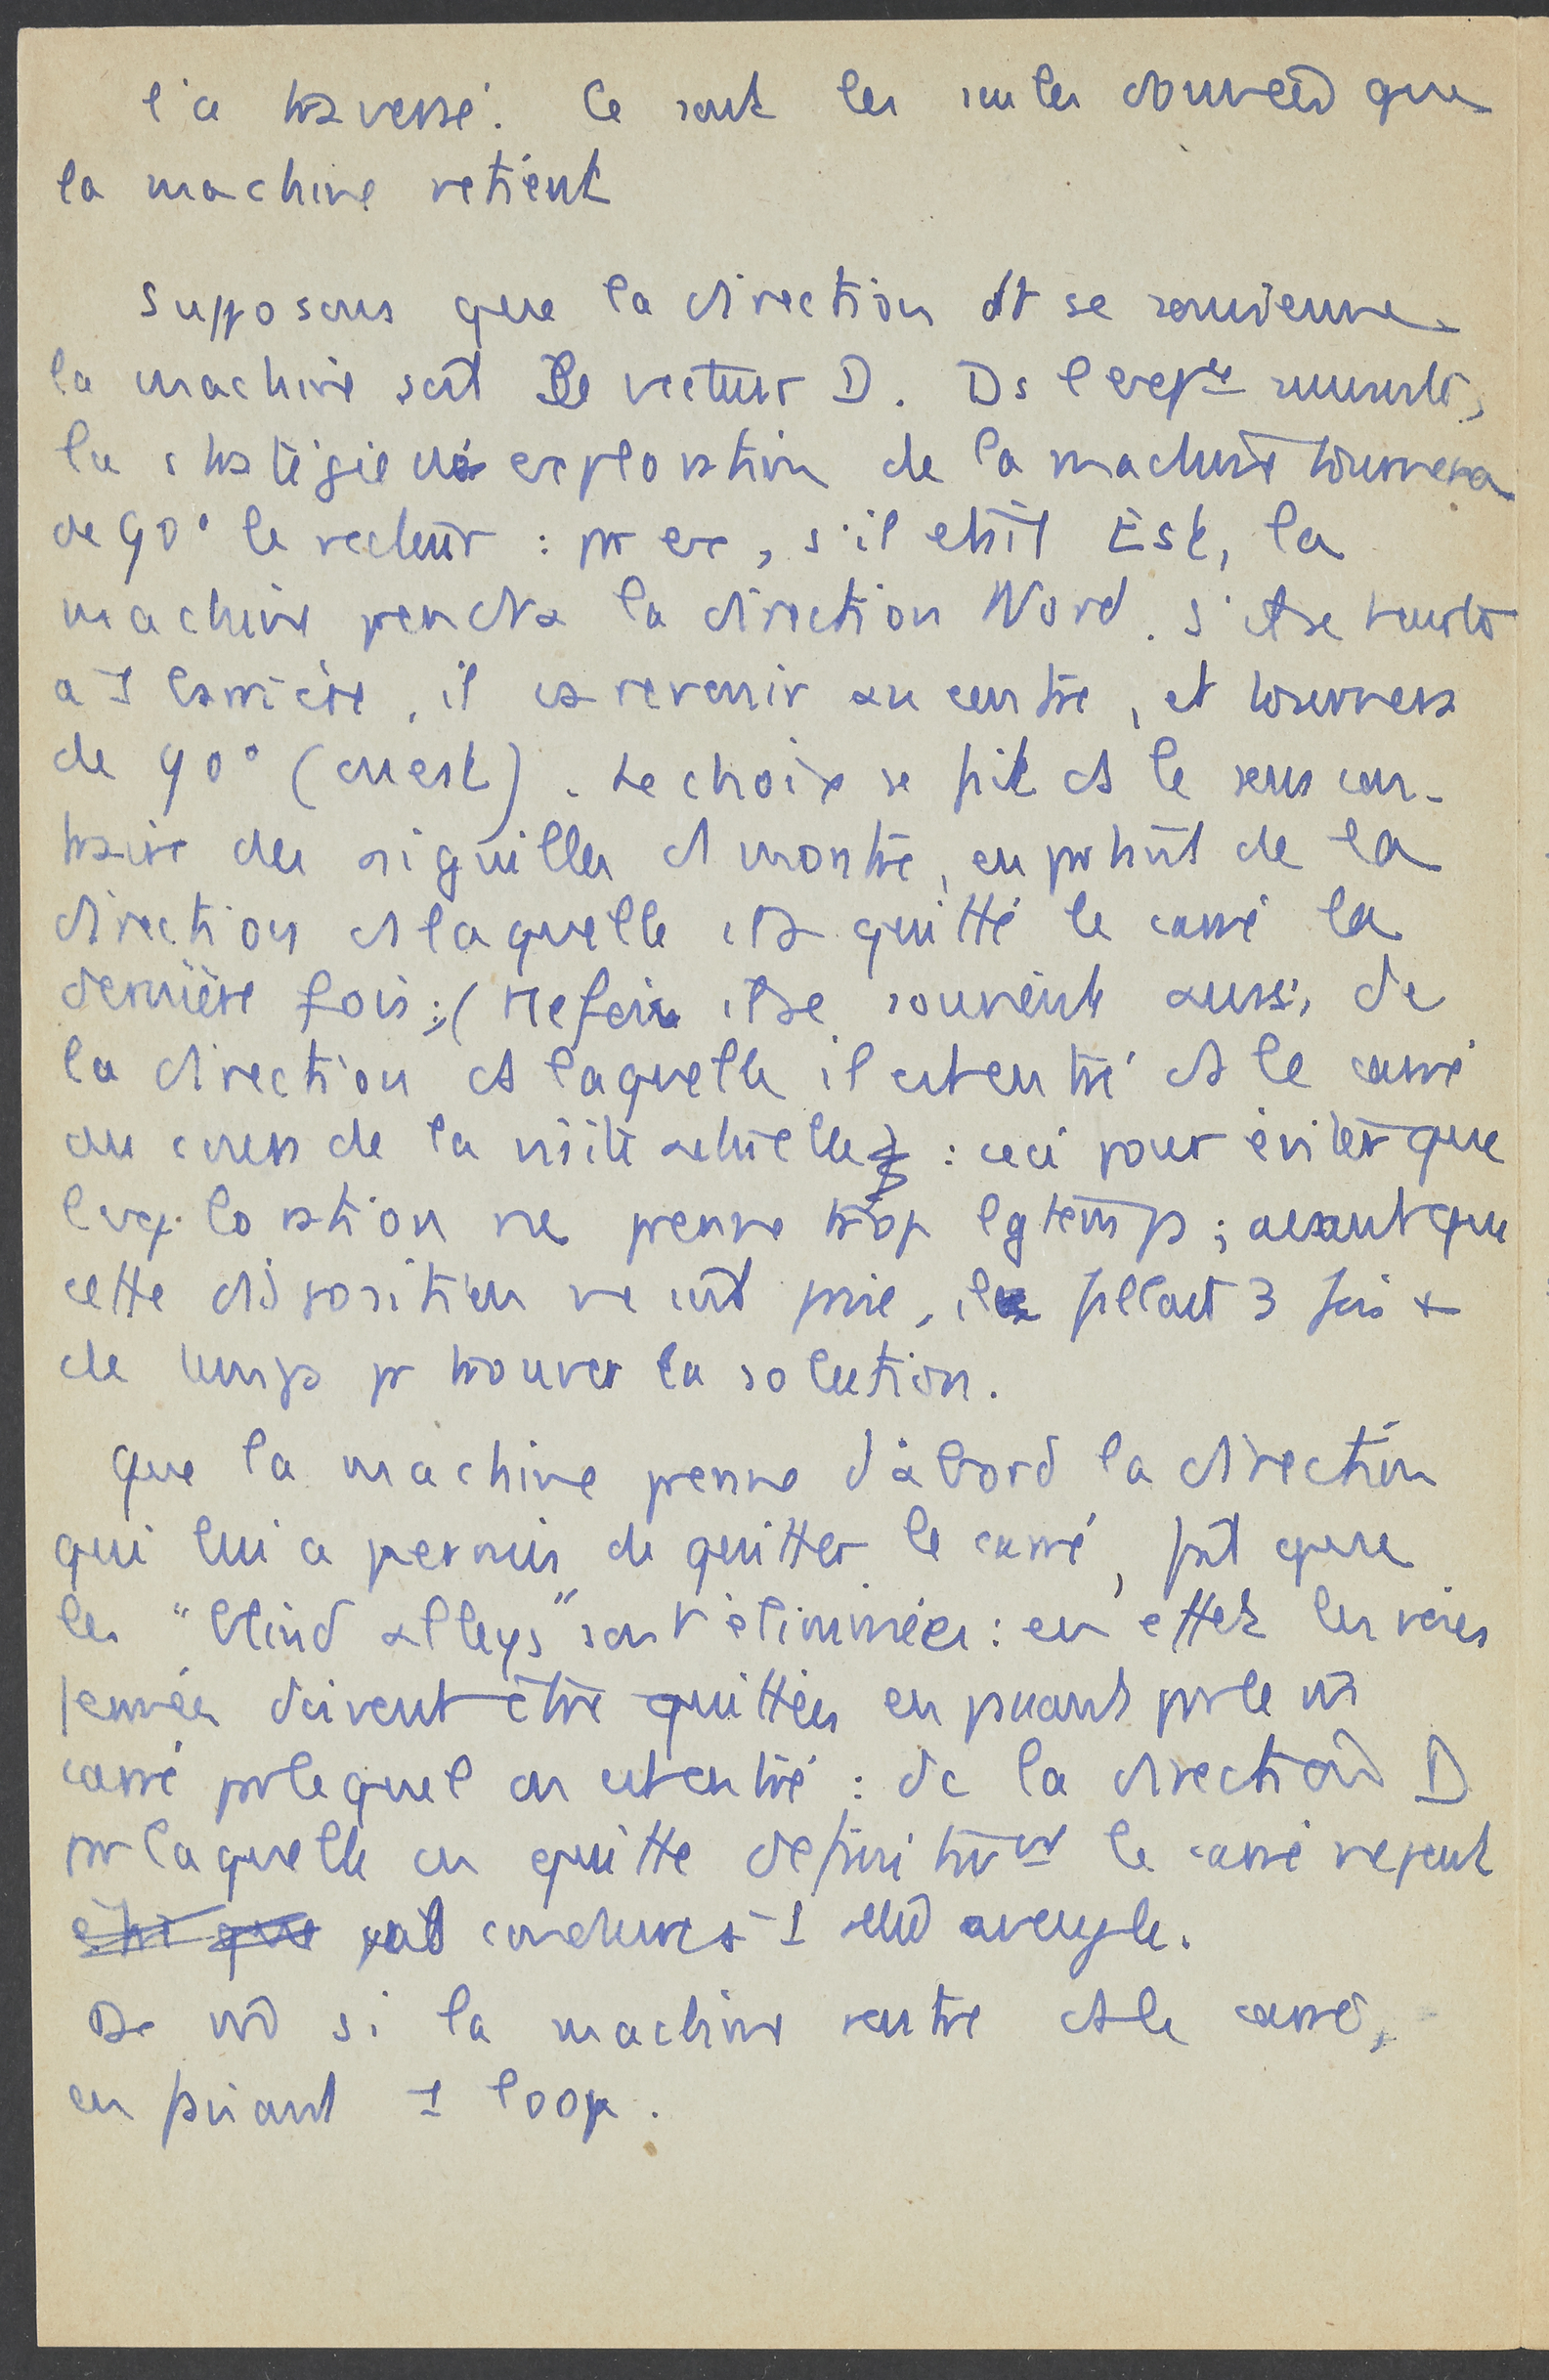 l'a traversé. Ce sont les seules données que
la machine retient
Supposons que la direction dt se souvienne
la machine soit le vecteur D. Ds l'expce suivante,
la stratégie d'exploration de la machine tournera
de 90° le vecteur : pr ex, s'il était Est, la
machine prendra la direction Nord. S'il se heurte
à 1 barrière, il va revenir au centre, et tournera
de 90° (ouest). Le choix se fait ds le sens con-
traire des aiguilles d montre, en partant de la
direction ds laquelle il a quitté le carré la
dernière fois : (Mefois il se souvient aussi de
la direction ds laquelle il est entré ds le carré
au cours de la visite actuelle) : ceci pour éviter que
l'exploration ne prenne trop lgtemps ; avant que
cette disposition ne soit prise, il fallait 3 fois +
de temps pr trouver la solution.
Que la machine prenne d'abord la direction
qui lui a permis de quitter le carré, fait que
les "blind alleys" sont éliminées : en effet les voies
fermées doivent être quittées en passant par le m̂
carré par lequel on est entré : dc la direction D
par laquelle on quitte définitivt le carré ne peut
être que pas conduire à 1 allée aveugle.
De m̂ si la machine rentre ds le carré,
en faisant 1 loop.